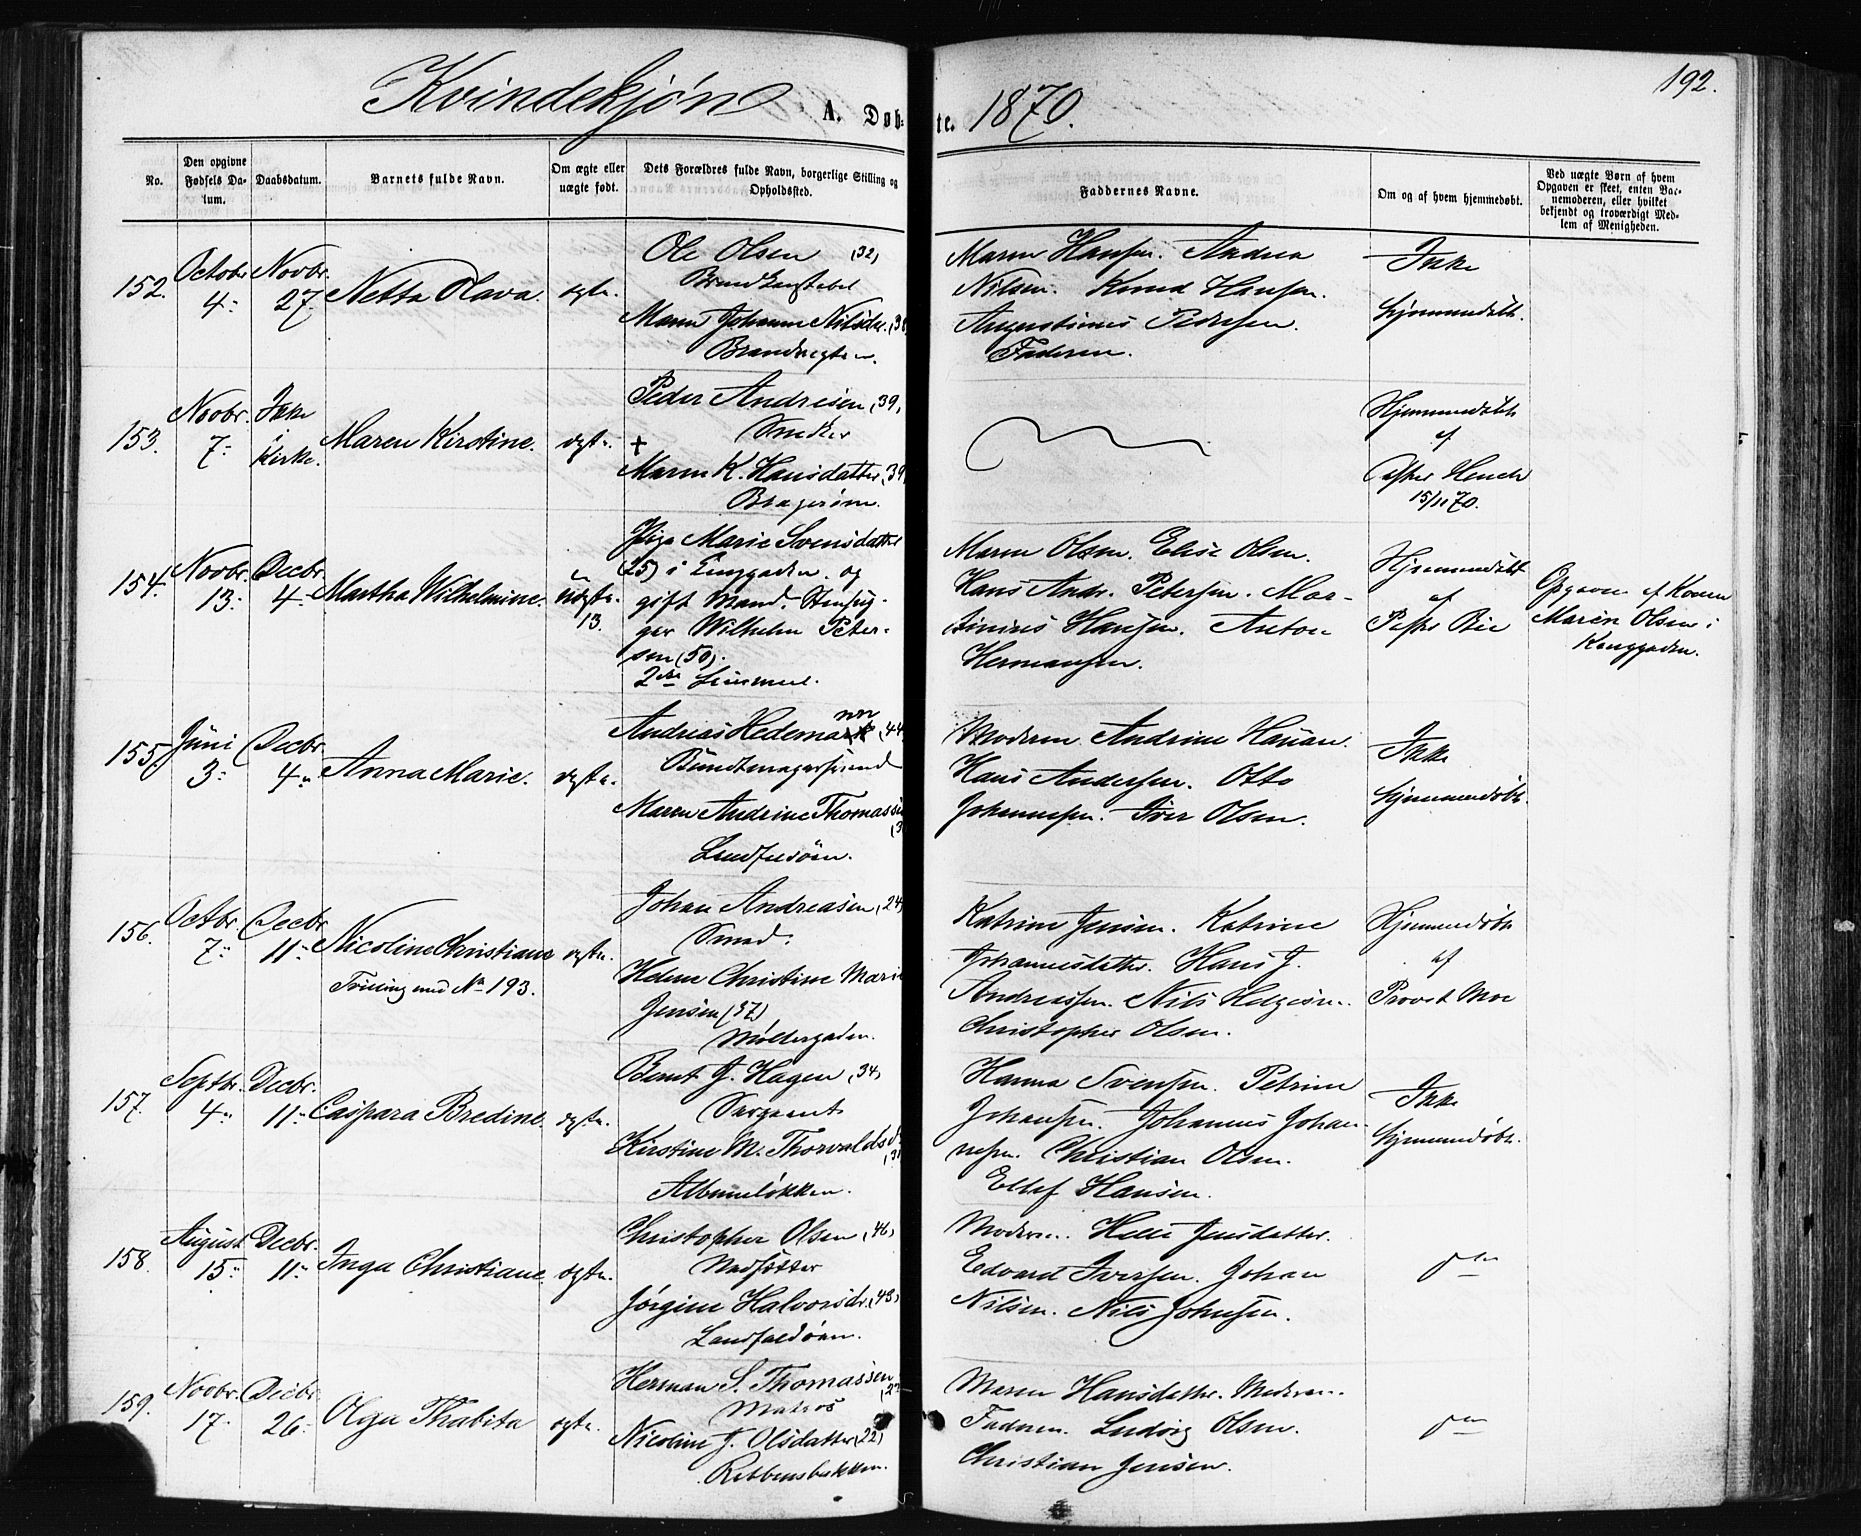 192.
Kvindekjøn A. Døb- te. 1870.
No.
Den opgivne Fødsels Da- tum.
Daabsdatum.
Barnets fulde Navn.
Om ægte eller uægte født.
Dets Forældres fulde Navn, borgerlige Stilling og Opholdssted.
Faddernes Navne.
Om og af hvem hjemmedøbt.
Ved uægte Børn af hvem Opgaven er skeet, enten Bar- nemoderen, eller hvilket bekjendt og troværdigt Med- lem af Menigheden.
152.
Octobr 4.
Novbr. 27.
Netta Olava.
ægte.
Ole Olsen (32)
Maren Johanne Nilsdr.
Brandvagten.
Maren Hansen. Andrea
Nilsen. Knud Hansen.
Augustinus Pedersen.
Faderen.
Ikke
hjemmedøbt.
153.
Novbr. 7.
Ikke i Kirke.
Maren Kirstine.
ægte.
Peder Andresen (39)
Snedker
+
Maren K. Hansdatter (39)
Bragerøen.
Hjemmedøbt
af
Hench
15/11 70.
154.
Novbr. 13.
Decbr. 4.
Martha Wilhelmine.
uægte.
13.
Pige Marie Svensdatter
(25) i Enggaden og
gift Mand. Stenhug-
ger Wilhelm Peter-
sen (50).
2det Leiermaal.
Maren Olsen. Elise Olsen.
Hans Andr. Petersen. Mar-
tinius Hansen. Anton
Hermansen.
Hjemmedøbt
af
Pastor Bie
Opgaven af Konen
Maren Olsen i
Enggaden.
155.
Juni 3.
Decbr. 4.
Anna Marie.
ægte.
Andreas Hedemann (44)
Bundtmagersvend
Maren Andrine Thomassen
Landfaldøen.
Moderen Andrine Hauan.
Hans Andersen. Otto
Johannesen. Iver Olsen.
Ikke
hjemmedøbt.
156.
Octbr. 7.
Decbr. 11.
Nicoline Christiane
Tvilling med No 193.
ægte.
Johan Andreasen (24)
Smed.
Helene Christine Marie
Jensen (37)
Møllergaden.
Katrine Jensen. Katrine
Johannesdatter. Hans J.
Andreassen. Nils Helgesen.
Christopher Olsen.
Hjemmedøbt
af
Provst Moe
157.
Septbr. 4.
Decbr. 11.
Caspara Bredine.
ægte.
Bernt J. Hagen (34)
Sergeant
Kirstine M. Thorvaldsd.
Albumløkken.
Hanna Svensen. Petrine
Johansen. Johannes Johan-
nesen. Christian Olsen.
Ellef Hansen.
Ikke
hjemmedøbt.
158.
August 15.
Decbr. 11.
Inga Christiane
ægte.
Christopher Olsen (46)
Jørgine Halvorsdr. (43)
Landfaldøen.
Moderen. Helle Jensdatter.
Edvard Iversen. Johan
Nilsen. Nils Johnsen.
do
159.
Novbr. 17.
Decbr. 26.
Olga Thabita
ægte.
Herman S. Thomassen
Matros
Nicoline J. Olsdatter (22)
Ribbensbakken.
Maren Hansdatter. Moderen.
Faderen. Ludvig Olsen.
Christian Jensen.
do